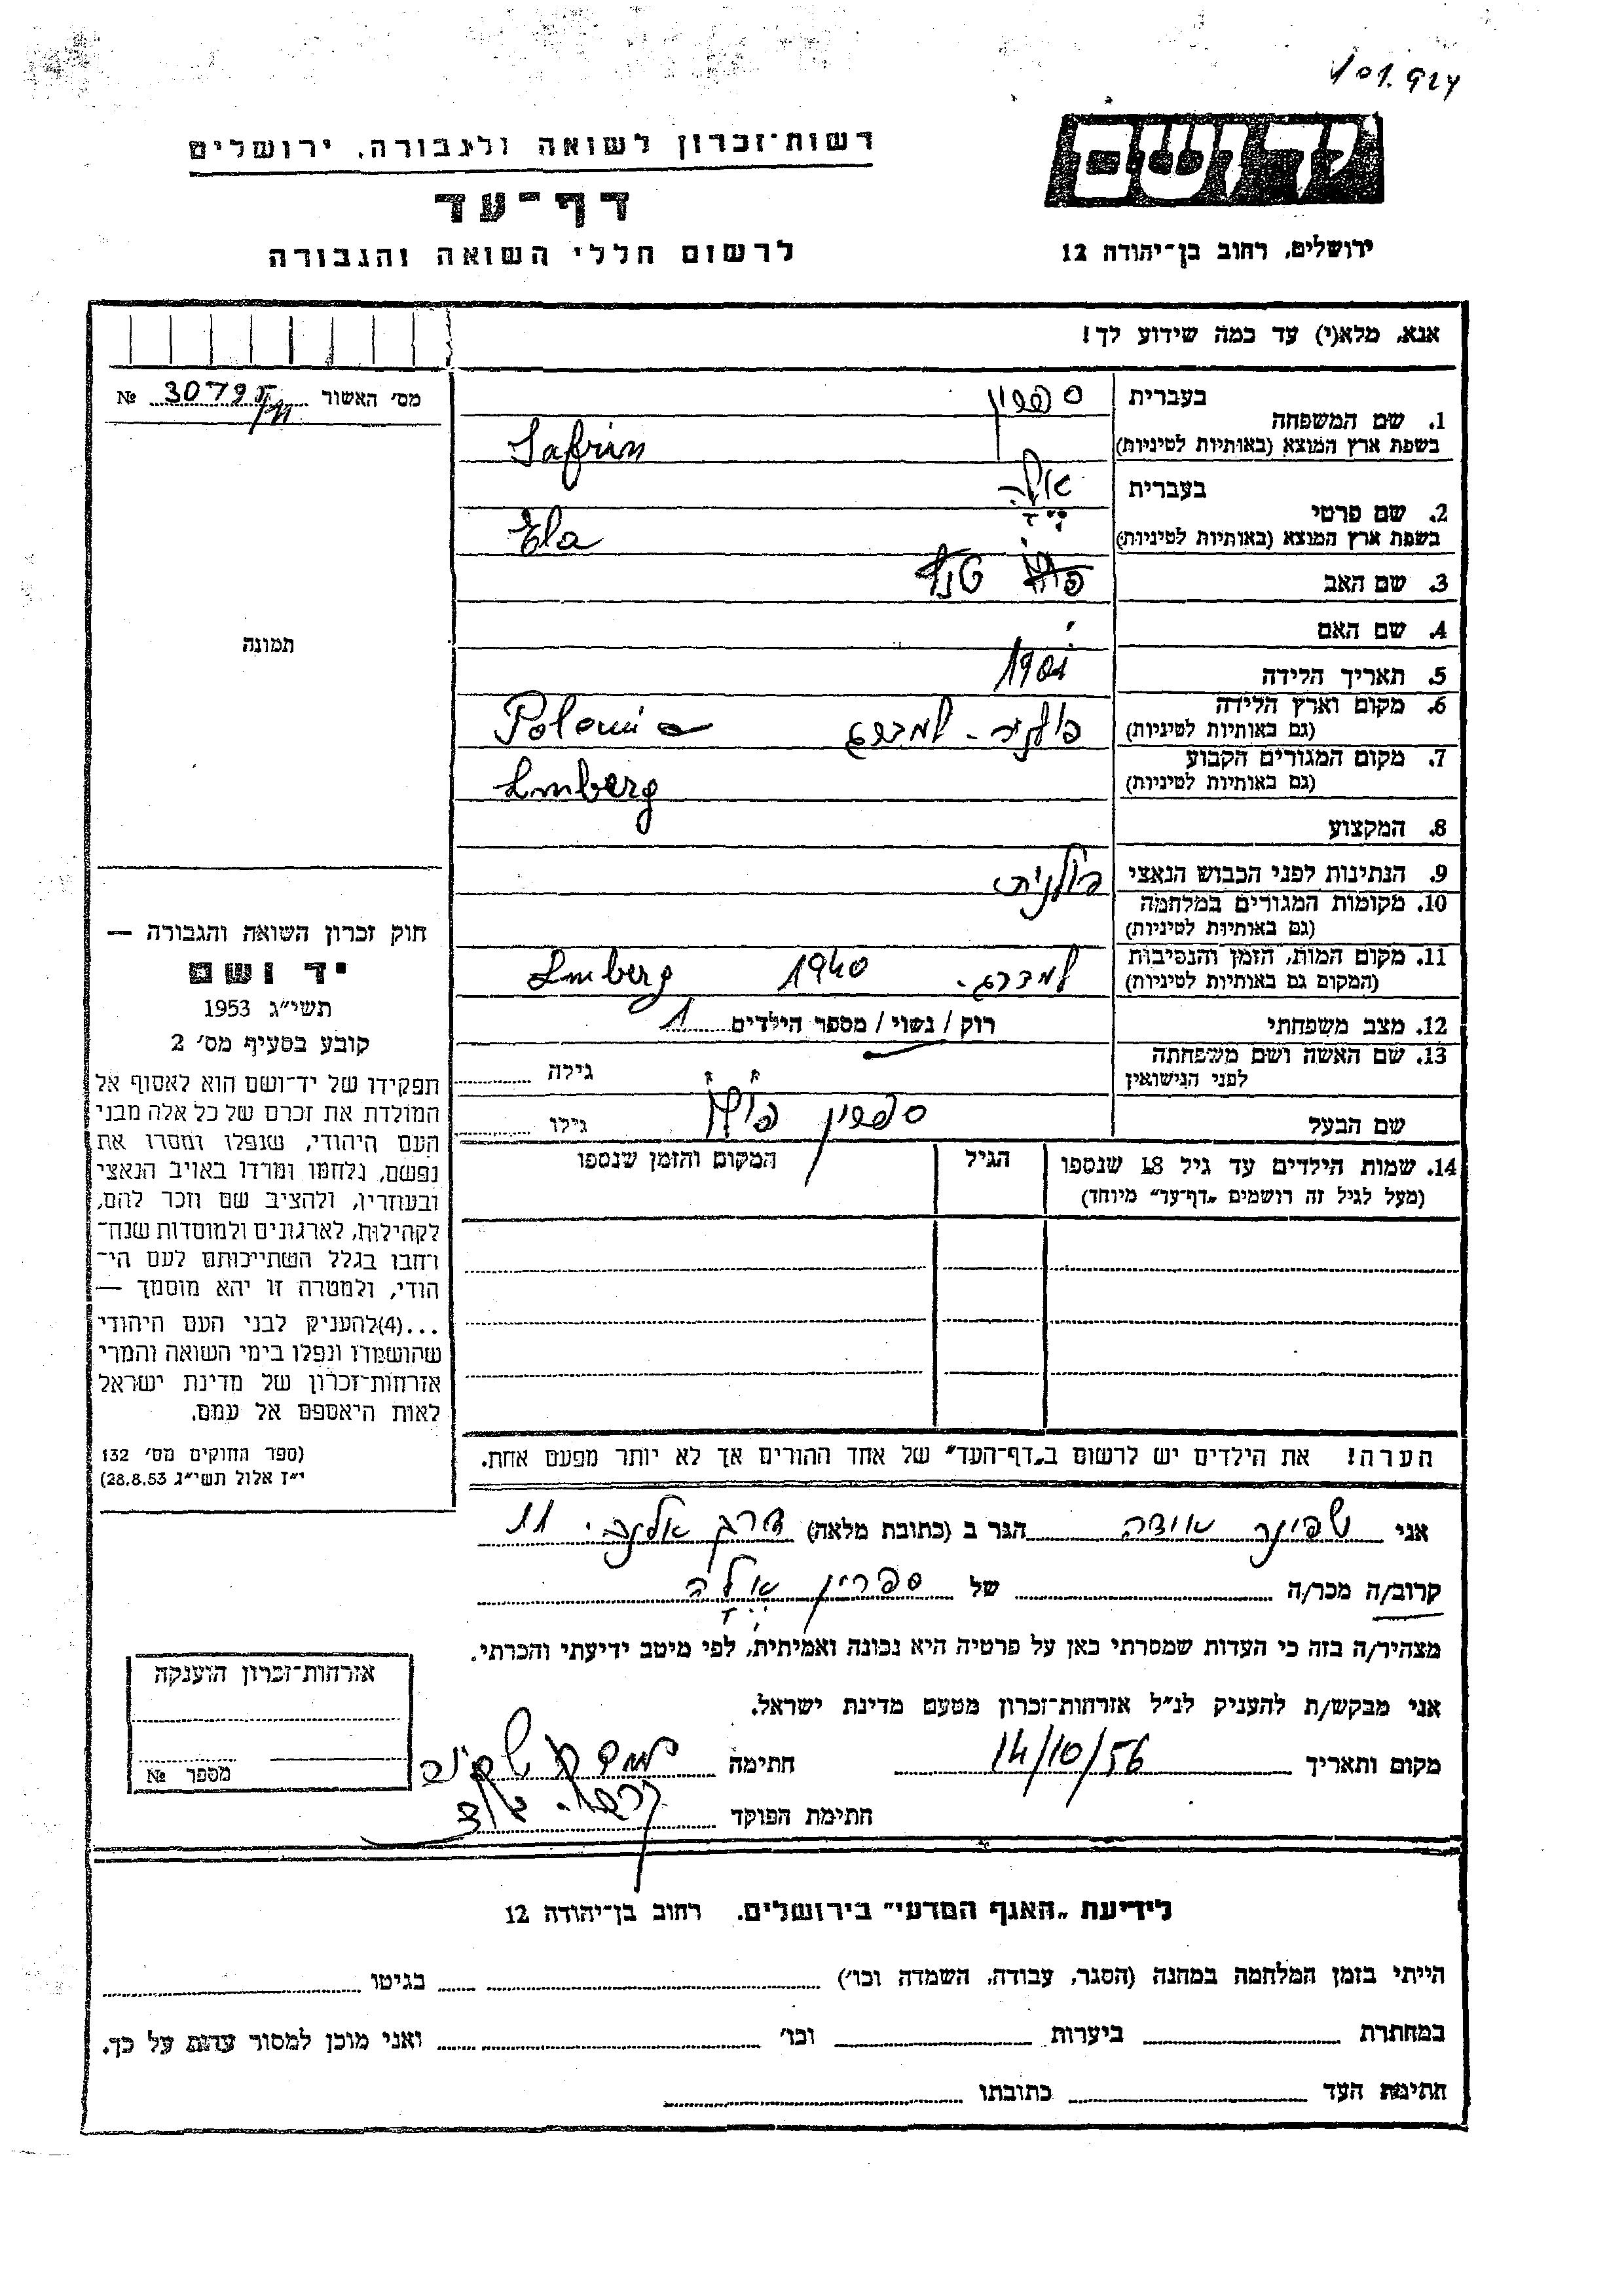 רשות־זכרון לשואה ולגבורה, ירושלים
דף־עד
לרשום חללי השואה והגבורה
יד ושם
ירושלים, רחוב בן־יהודה 12
אנא, מלא(י) עד כמה שידוע לך!
מס׳ האשור № 30795
1. שם המשפחה
בעברית ספרין
בשפת ארץ המוצא (באותיות לטיניות) Safrin
2. שם פרטי
בעברית אלה
בשפת ארץ המוצא (באותיות לטיניות) Ela
3. שם האב
4. שם האם
5. תאריך הלידה 1901
6. מקום וארץ הלידה
(גם באותיות לטיניות) פולניה - למברג Polonia
7. מקום המגורים הקבוע
(גם באותיות לטיניות) Lmberg
8. המקצוע
9. הנתינות לפני הכבוש הנאצי פולנית
10. מקומות המגורים במלחמה
(גם באותיות לטיניות)
11. מקום המות, הזמן והנסיבות
(המקום גם באותיות לטיניות) למברג. 1940 Lmberg
12. מצב משפחתי רוק / נשוי / מספר הילדים 1
13. שם האשה ושם משפחתה
לפני הנישואין גילה
שם הבעל ספרין גילו
14. שמות הילדים עד גיל 18 שנספו
(מעל לגיל זה רושמים „דף־עד” מיוחד)
הגיל
המקום והזמן שנספו
הערה! את הילדים יש לרשום ב„דף־העד” של אחד ההורים אך לא יותר מפעם אחת.
תמונה
חוק זכרון השואה והגבורה —
יד ושם
תשי״ג 1953
קובע בסעיף מס׳ 2
תפקידו של יד־ושם הוא לאסוף אל
המולדת את זכרם של כל אלה מבני
העם היהודי, שנפלו ומסרו את
נפשם, נלחמו ומרדו באויב הנאצי
ובעוזריו, ולהציב שם וזכר להם,
לקהילות, לארגונים ולמוסדות שנח־
רחבו בגלל השתייכותם לעם הי־
הודי, ולמטרה זו יהא מוסמך —
...(4)להעניק לבני העם היהודי
שהושמדו ונפלו בימי השואה והמרי
אזרחות־זכרון של מדינת ישראל
לאות היאספם אל עמם.
(ספר החוקים מס׳ 132
י״ז אלול תשי״ג 28.8.53)
אני שפינר אידה הגר ב (כתובת מלאה) דרך אלנבי 11
קרוב/ה מכר/ה של ספרין אלה
מצהיר/ה בזה כי העדות שמסרתי כאן על פרטיה היא נכונה ואמיתית, לפי מיטב ידיעתי והכרתי.
אני מבקש/ת להעניק לנ״ל אזרחות־זכרון מטעם מדינת ישראל.
מקום ותאריך 14/10/56 חתימה
חתימת הפוקד
אזרחות־זכרון הוענקה
מספר №
לידיעת „האגף המדעי” בירושלים. רחוב בן־יהודה 12
הייתי בזמן המלחמה במחנה (הסגר, עבודה, השמדה וכו׳) בגיטו
במחתרת ביערות וכו׳ ואני מוכן למסור עדות על כך.
חתימת העד כתובתו